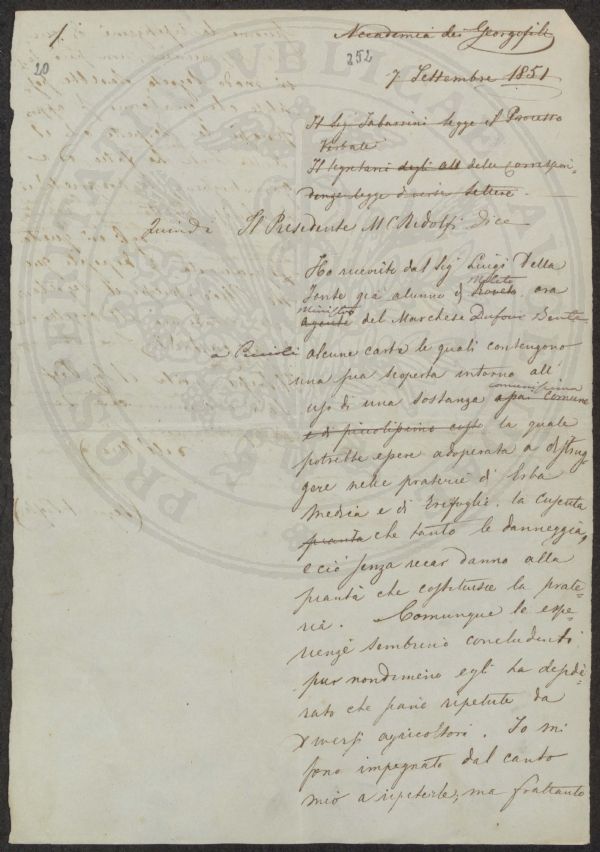 1.
20
252
Accademia dei Georgofili
7 Settembre 1851
Il Sig Tabarrini legge il Processo
Verbale
Il Segretario degli Atti della Corrispon-
denza legge diverse Lettere.
Quindi Il Presidente M Ridolfi dice
Ho ricevuto dal Sig Luigi Della
Fonte già alunno di Meleto ora
ministro
agente del Marchese Dufour Berte
alcune carte le quali contengono
una sua scoperta intorno all'
uso di una sostanza comunissima
assai comune
e di piccolissimo costo, la quale
potrebbe essere adoperata a distrug
gere nelle praterie d'Erba
Medica e di Trifoglio, la Cuscuta
pianta che tanto le danneggia,
e ciò senza recar danno alla
pianta che costituisce la prate-
ria. Comunque le espe-
rienze sembrino concludenti
pur nondimeno egli ha deside-
rato che siano ripetute da
diversi agricoltori. Io mi
sono impegnato dal canto
mio a ripeterle; ma frattanto